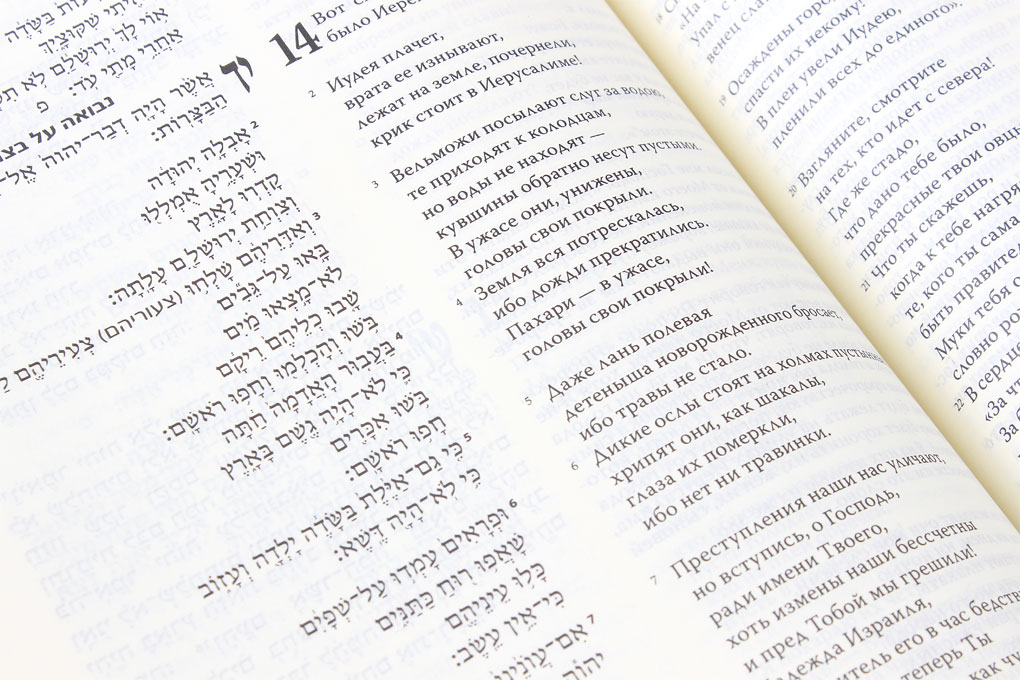 ות בַּשָּׂדֶה
יתִי שִׁקּוּצָיִךְ
לָךְ יְרוּשָׁלִַם לֹא
אַחֲרֵי מָתַי עֹד׃ פ
נבואה על
יד
אֲשֶׁר הָיָה דְבַר־יְהוָה אֶל־
הַבַּצָּרוֹת׃
2 אָבְלָה יְהוּדָה
וּשְׁעָרֶיהָ אֻמְלְלוּ
קָדְרוּ לָאָרֶץ
וְצִוְחַת יְרוּשָׁלִַם עָלָתָה׃
3 וְאַדִּרֵיהֶם שָׁלְחוּ (צעוריהם) צְעִירֵיהֶם
בָּאוּ עַל־גֵּבִים
לֹא־מָצְאוּ מַיִם
שָׁבוּ כְלֵיהֶם רֵיקָם
בֹּשׁוּ וְהָכְלְמוּ וְחָפוּ רֹאשָׁם׃
4 בַּעֲבוּר הָאֲדָמָה חַתָּה
כִּי לֹא־הָיָה גֶשֶׁם בָּאָרֶץ
בֹּשׁוּ אִכָּרִים
חָפוּ רֹאשָׁם׃
5 כִּי גַם־אַיֶּלֶת בַּשָּׂדֶה יָלְדָה וְעָזוֹב
כִּי לֹא־הָיָה דֶּשֶׁא׃
6 וּפְרָאִים עָמְדוּ עַל־שְׁפָיִם
שָׁאֲפוּ רוּחַ כַּתַּנִּים
כָּלוּ עֵינֵיהֶם
כִּי־אֵין עֵשֶׂב׃
7 אִם־עֲוֹנֵינוּ
יְהוָה
14 Вот
было
2 Иудея плачет,
врата ее изнывают,
лежат на земле, почернели,
крик стоит в Иерусалиме!
3 Вельможи посылают слуг за водою,
те приходят к колодцам,
но воды не находят —
кувшины обратно несут пустыми.
В ужасе они, унижены,
головы свои покрыли.
4 Земля вся потрескалась,
ибо дожди прекратились.
Пахари — в ужасе,
головы свои покрыли!
5 Даже лань полевая
детеныша новорожденного бросает,
ибо травы не стало.
6 Дикие ослы стоят на холмах
хрипят они, как шакалы,
глаза их померкли,
ибо нет ни травинки.
7 Преступления наши нас уличают,
но вступись, о Господь,
ради имени Твоего,
хоть измены наши бессчетны
и пред Тобой мы грешили!
Израиля,
его в час
теперь Ты
18
«На
Упал с
венец
19 Осаждены
спасти их некому!
В плен увели Иудею,
пленили всех до единого».
20 Взгляните, смотрите
на тех, кто идет с севера!
Где же стадо,
что дано тебе было,
прекрасные твои
21 Что ты скажешь,
когда к тебе
те, кого ты сама
быть
Муки тебя
словно
22 В
«За
За